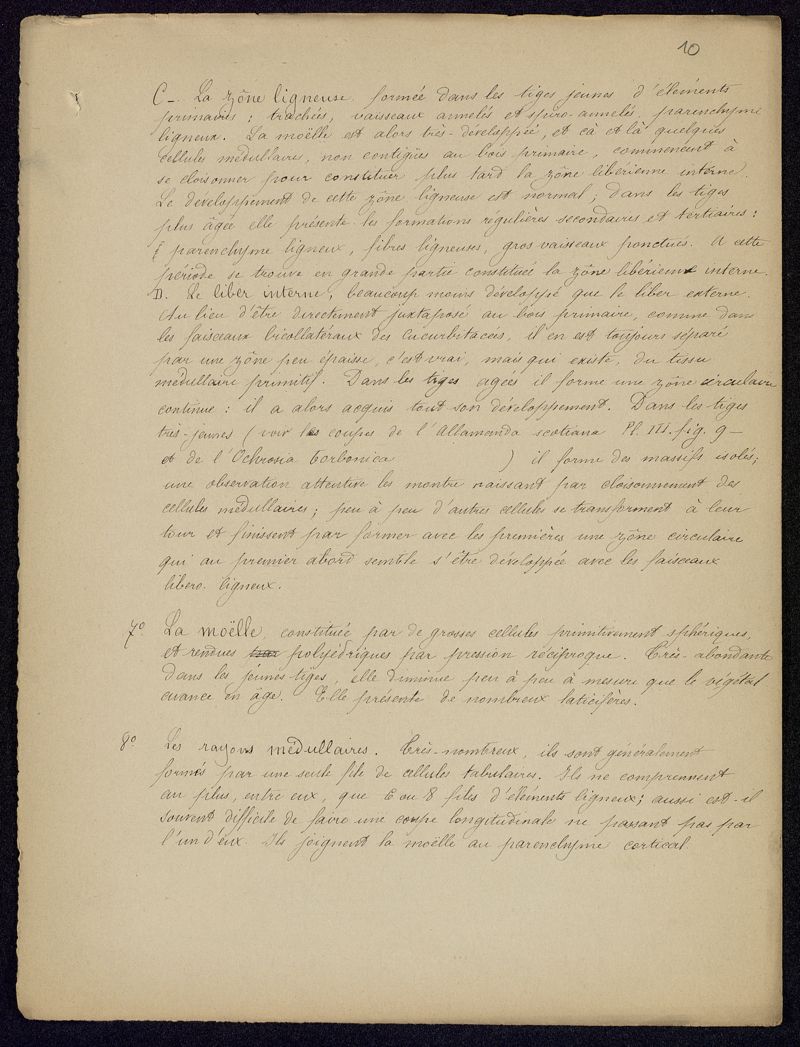 10
C_. La zône ligneuse formée dans les tiges jeunes d'éléments
primaires : trachées, vaisseaux annelés et spiro-annelés, parenchyme
ligneux. La moëlle est alors très-développée, et çà et là quelques
cellules médullaires, non contigües au bois primaire, commencent à
se cloisonner pour constituer plus tard la zône libérienne interne.
Le développement de cette zône ligneuse est normal ; dans les tiges
plus âgée elle présente les formations régulières secondaires et tertiaires :
parenchyme ligneux, fibres ligneuses, gros vaisseaux ponctués. A cette
période se trouve en grande partie constituée la zône libérienne interne.
D. Le liber interne, beaucoup moins développé que le liber externe.
Au lieu d'être directement juxtaposé au bois primaire, comme dans
les faisceaux bicollatéraux des Cucurbitacées, il en est toujours séparé
par une zône peu épaisse, c'est vrai, mais qui existe, du tissu
médullaire primitif. Dans les tiges agées il forme une zône circulaire
continue : il a alors acquis tout son développement. Dans les tiges
très-jeunes (voir les coupes de l'Allamanda scotiana Pl. III. fig. 9 _
et de l'Ochrosia borbonica ) il forme des massifs isolés ;
une observation attentive les montre naissant par cloisonnement des
cellules médullaires ; peu à peu d'autres cellules se transforment à leur
tour et finissent par former avec les premières une zône circulaire
qui au premier abord semble s'être développée avec les faisceaux
libero-ligneux.
7º La moëlle, constituée par de grosses cellules primitivement sphériques,
et rendues polyédriques par pression réciproque. Très-abondante
dans les jeunes tiges, elle diminue peu à peu à mesure que le végétal
avance en âge. Elle présente de nombreux laticifères.
8º Les rayons médullaires. Très-nombreux, ils sont généralement
formés par une seule file de cellules tabulaires. Ils ne comprennent
au plus, entre eux, que 6 ou 8 files d'éléments ligneux ; aussi est-il
souvent difficile de faire une coupe longitudinale ne passant pas par
l'un d'eux. Ils joignent la moëlle au parenchyme cortical.